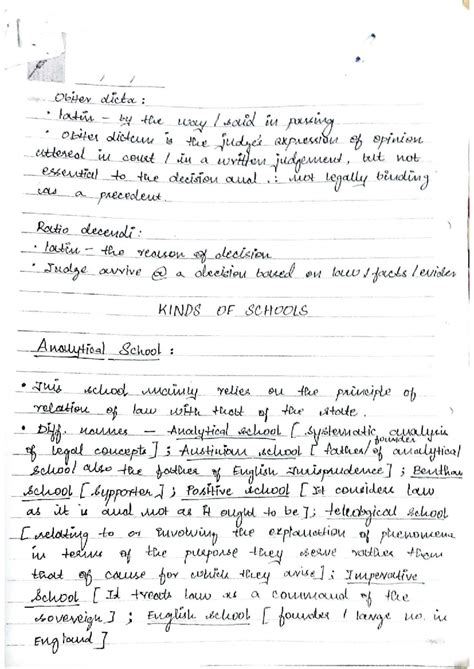 Obiter dicta :
• latin - by the way / said in passing
• Obiter dictum is the judge's expression of opinion
uttered in court / in a written judgement, but not
essential to the decision and ∴ not legally binding
as a precedent.
Ratio decendi :
• latin - the reason of decision
• Judge arrive @ a decision based on law / facts / eviden
KINDS OF SCHOOLS
Analytical School :
• This school mainly relies on the principle of
relation of law with that of the state.
• Diff. names - Analytical school [ systematic analysis
of legal concepts ] ; Austinian school [ father / founder of analytical
school / also the father of English Jurisprudence ] ; Bentham
school [ supporter ] ; Positive school [ It considers law
as it is and not as it ought to be ] ; teleological school
[ relating to or involving the explanation of phenomena
in terms of the purpose they serve rather than
that of cause for which they arise ] ; Imperative
School [ It treats law as a command of the
sovereign ] ; English school [ founder / large no. in
England ]